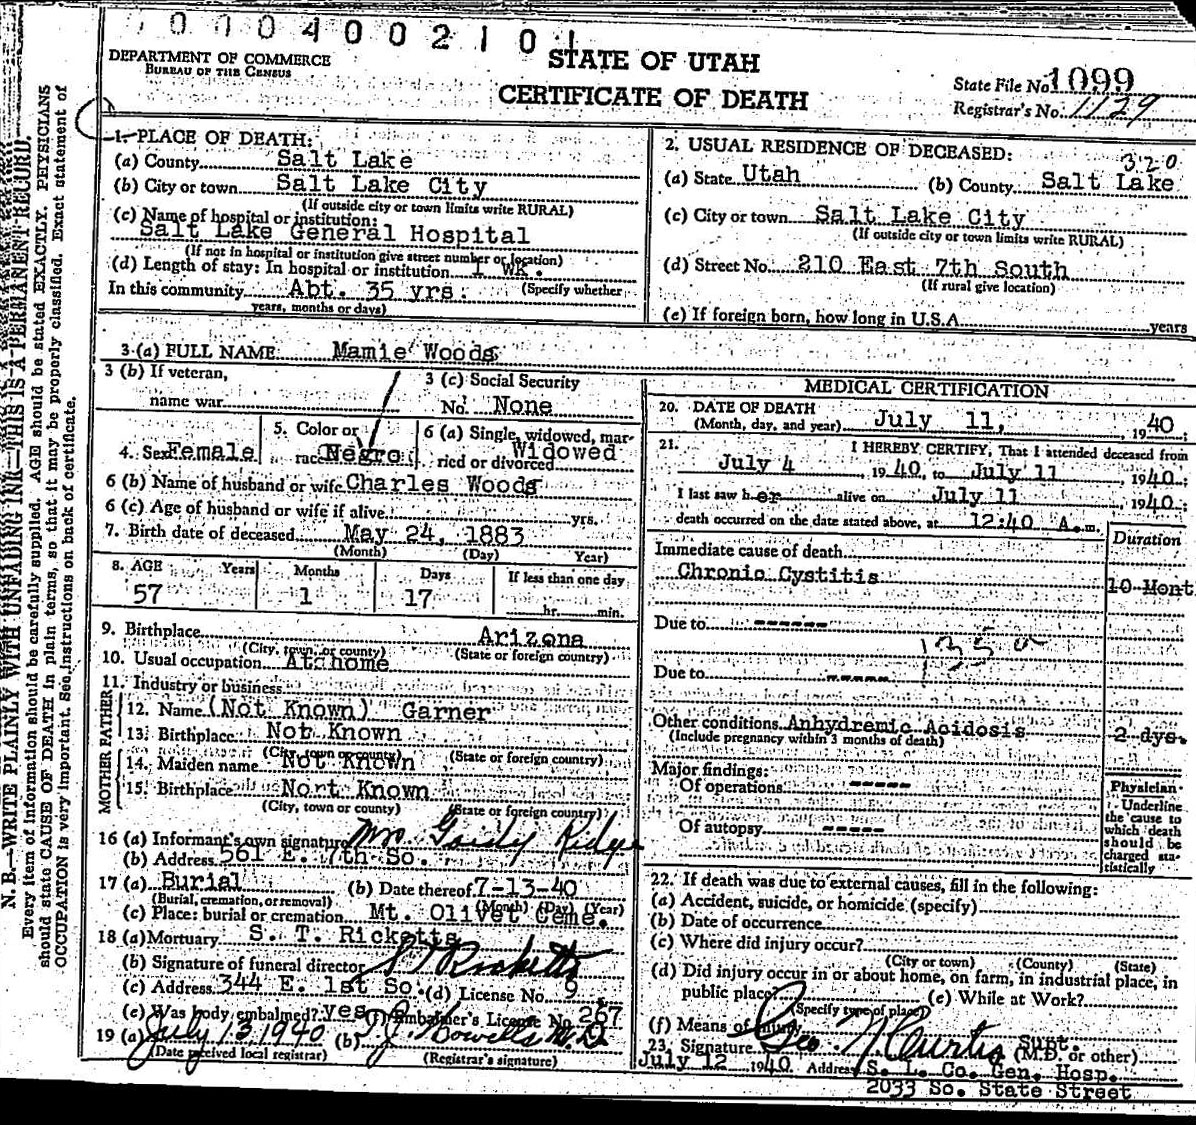 0 0 0 4 0 0 2 1 0 1
DEPARTMENT OF COMMERCE
BUREAU OF THE CENSUS
STATE OF UTAH
CERTIFICATE OF DEATH
State File No. 1099
Registrar's No. 1129
N. B.—WRITE PLAINLY WITH UNFADING INK—THIS IS A PERMANENT RECORD.
Every item of information should be carefully supplied. AGE should be stated EXACTLY. PHYSICIANS
should state CAUSE OF DEATH in plain terms, so that it may be properly classified. Exact statement of
OCCUPATION is very important. See instructions on back of certificate.
1. PLACE OF DEATH:
(a) County Salt Lake
(b) City or town Salt Lake City
(If outside city or town limits write RURAL)
(c) Name of hospital or institution:
Salt Lake General Hospital
(If not in hospital or institution give street number or location)
(d) Length of stay: In hospital or institution 1 wk.
In this community Abt. 35 yrs. (Specify whether
years, months or days)
2. USUAL RESIDENCE OF DECEASED:
320
(a) State Utah (b) County Salt Lake
(c) City or town Salt Lake City
(If outside city or town limits write RURAL)
(d) Street No. 210 East 7th South
(If rural give location)
(e) If foreign born, how long in U.S.A. years
3 (a) FULL NAME Mamie Woods
3 (b) If veteran,
name war
3 (c) Social Security
No. None
4. Sex Female
5. Color or
race Negro
6 (a) Single, widowed, mar-
ried or divorced Widowed
6 (b) Name of husband or wife Charles Woods
6 (c) Age of husband or wife if alive yrs.
7. Birth date of deceased May 24, 1883
(Month) (Day) Year)
8. AGE Years Months Days If less than one day
57 1 17 hr. min.
9. Birthplace Arizona
(City, town, or county) (State or foreign country)
10. Usual occupation At home
11. Industry or business
FATHER
12. Name (Not Known) Garner
13. Birthplace Not Known
(City, town or county) (State or foreign country)
MOTHER
14. Maiden name Not Known
15. Birthplace Nort Known
(City, town or county) (State or foreign country)
16 (a) Informant's own signature Mrs.
(b) Address 561 E. 7th So.
17 (a) Burial (b) Date thereof 7-13-40
(Burial, cremation, or removal) (Month) (Day) (Year)
(c) Place: burial or cremation Mt. Olivet Ceme.
18 (a) Mortuary S. T. Ricketts
(b) Signature of funeral director S T Ricketts
(c) Address 344 E. 1st So. (d) License No. 9
(e) Was body embalmed? yes Embalmer's License No. 267
19 (a) July 13, 1940 (b) T J Howells M.D.
(Date received local registrar) (Registrar's signature)
MEDICAL CERTIFICATION
20. DATE OF DEATH
(Month, day, and year) July 11, 1940;
21. I HEREBY CERTIFY, That I attended deceased from
July 4 1940, to July 11, 1940;
I last saw her alive on July 11 1940;
death occurred on the date stated above, at 12:40 A.m.
Duration
Immediate cause of death
Chronic Cystitis 10 Mont
Due to ------
Due to -----
Other conditions Anhydremic Acidosis 2 dys.
(Include pregnancy within 3 months of death)
Major findings:
Of operations -----
Of autopsy -----
Physician
Underline
the cause to
which death
should be
charged sta-
tistically
22. If death was due to external causes, fill in the following:
(a) Accident, suicide, or homicide (specify)
(b) Date of occurrence
(c) Where did injury occur?
(City or town) (County) (State)
(d) Did injury occur in or about home, on farm, in industrial place, in
public place? (e) While at Work?
(Specify type of place)
(f) Means of injury
23. Signature Geo N Curtis Supt.
(M.D. or other)
July 12 1940 Address S. L. Co. Gen. Hosp.
2033 So. State Street